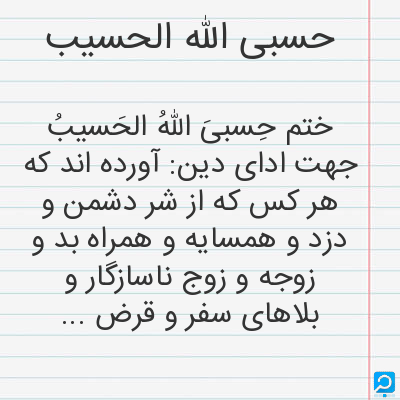 حسبی الله الحسیب
ختم حِسبیَ اللهُ الحَسیبُ
جهت ادای دین: آورده اند که
هر کس که از شر دشمن و
دزد و همسایه و همراه بد و
زوجه و زوج ناسازگار و
بلاهای سفر و قرض ...